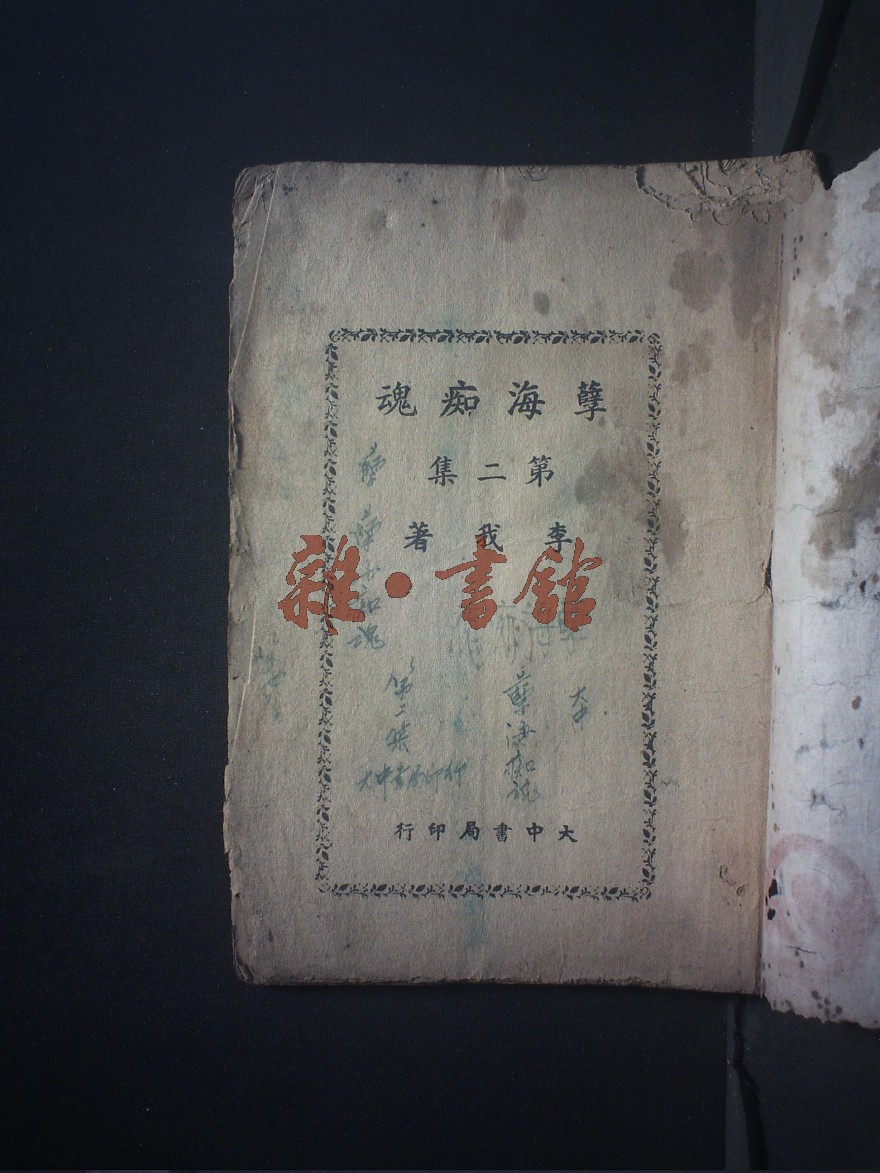 孽海痴魂
第二集
李我著
雜·書館
孽
孽海痴魂
第二集
大中書局印行
孽海痴魂
大中
大中書局印行